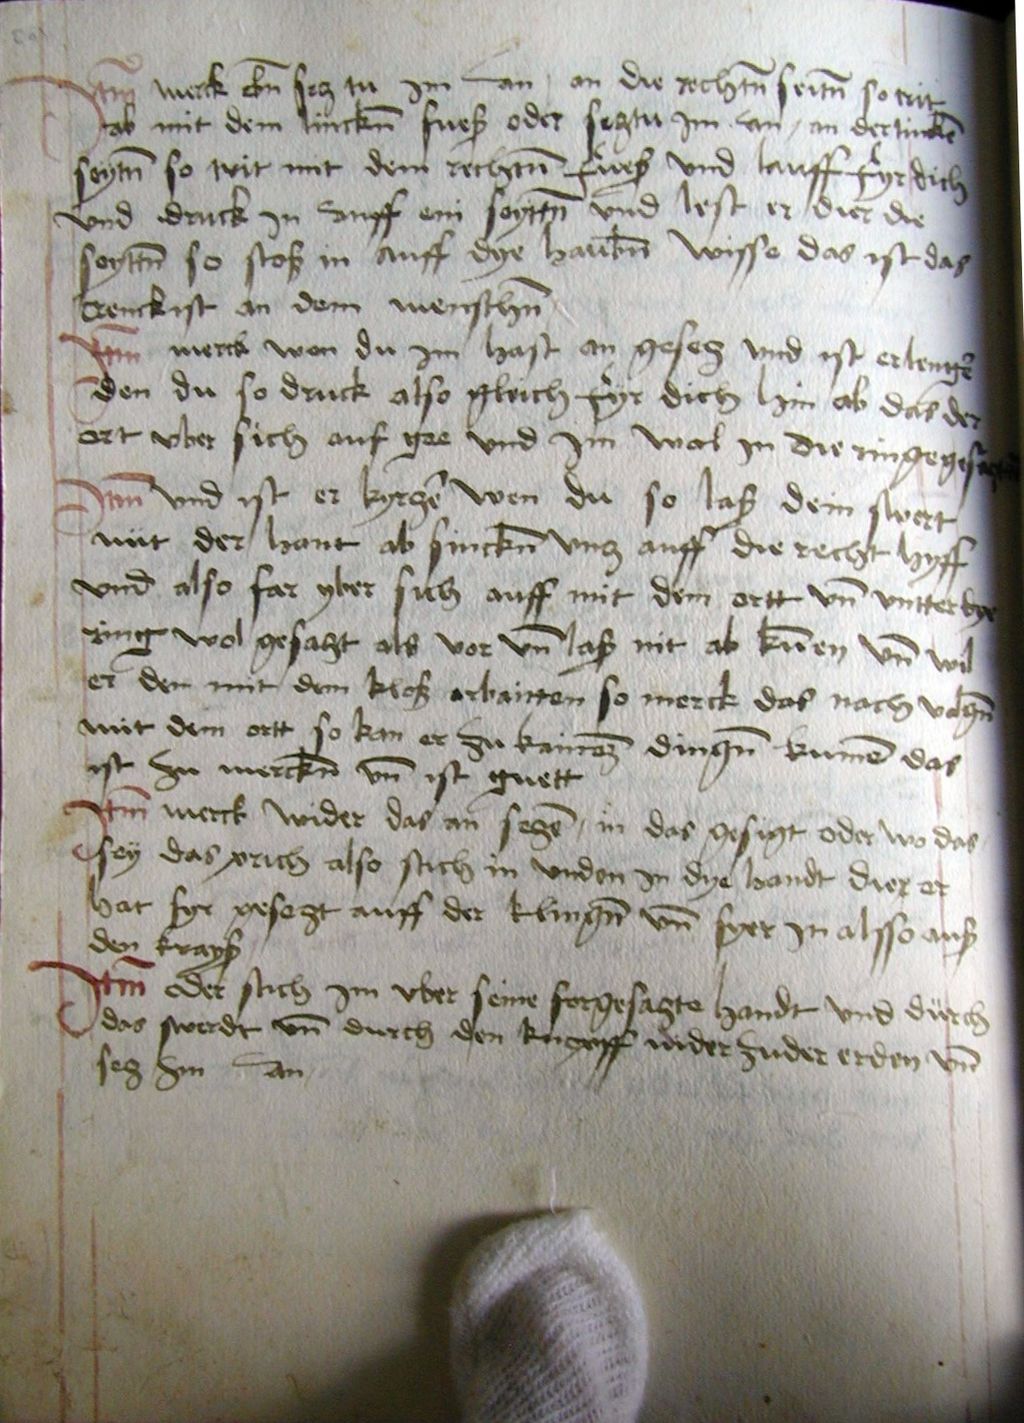 Itm̄ merck ebn̄ setz tu im an / an die rechtn̄ seitn̄ so trit
ab mit dem linckn̄ fueß oder setztu Im an / an der linckē
seytn̄ so trit mit dem rechtn̄ fueß vnd lauff fyr dich
vnd druck In auff ein seyttn̄ vnd lest er dier die
seyttn̄ so stoß in auff dye haubn̄ wisse das ist das
krenckist an dem menschn̄
Itm̄ merck wen du im hast an gesetz vnd ist er lenngē
den du so druck also gleich fyr dich hin ab das der
ort vber sich auf gee vnd im wol in die ringe
Itm̄ vnd ist er kyrtzē wen du so laß dein swert
mit der hant ab sinckn̄ vntz auff die recht hyff
vnd also far yber sich auff mit dem ortt vn̄ vntter dye
ring wol gesatzt als vor vn̄ laß nit ab kūen vn̄ wil
er den mit dem kloß arbaitten so merck das nach volgn̄
mit dem ortt so kan er zu kainen dingn̄ kumē das
ist zu merckn̄ vn̄ ist guett
Itm̄ merck wider das an setzē / in das gesigt oder wo das
sey das prich also stich in vnden in dye handt dier er
hat fyr gesetzt auff der klingn̄ vn̄ fyer in alsso auß
den krayß
Itm̄ oder stich im vber seine forgesatzte handt vnd dürch
das swerdt vn̄ durch den knopff nider zu der erden vn̄
setz Im an